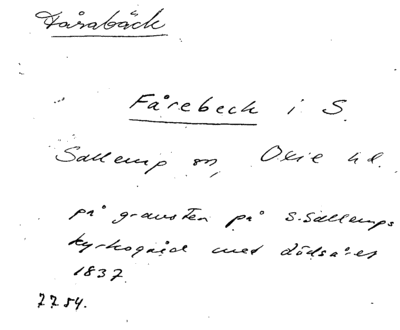 Fårabäck
Fårebeck i S.
Sallerup sn, Oxie hd.
på gravsten på S. Sallerups
kyrkogård med dödsåret
1837.
7754.